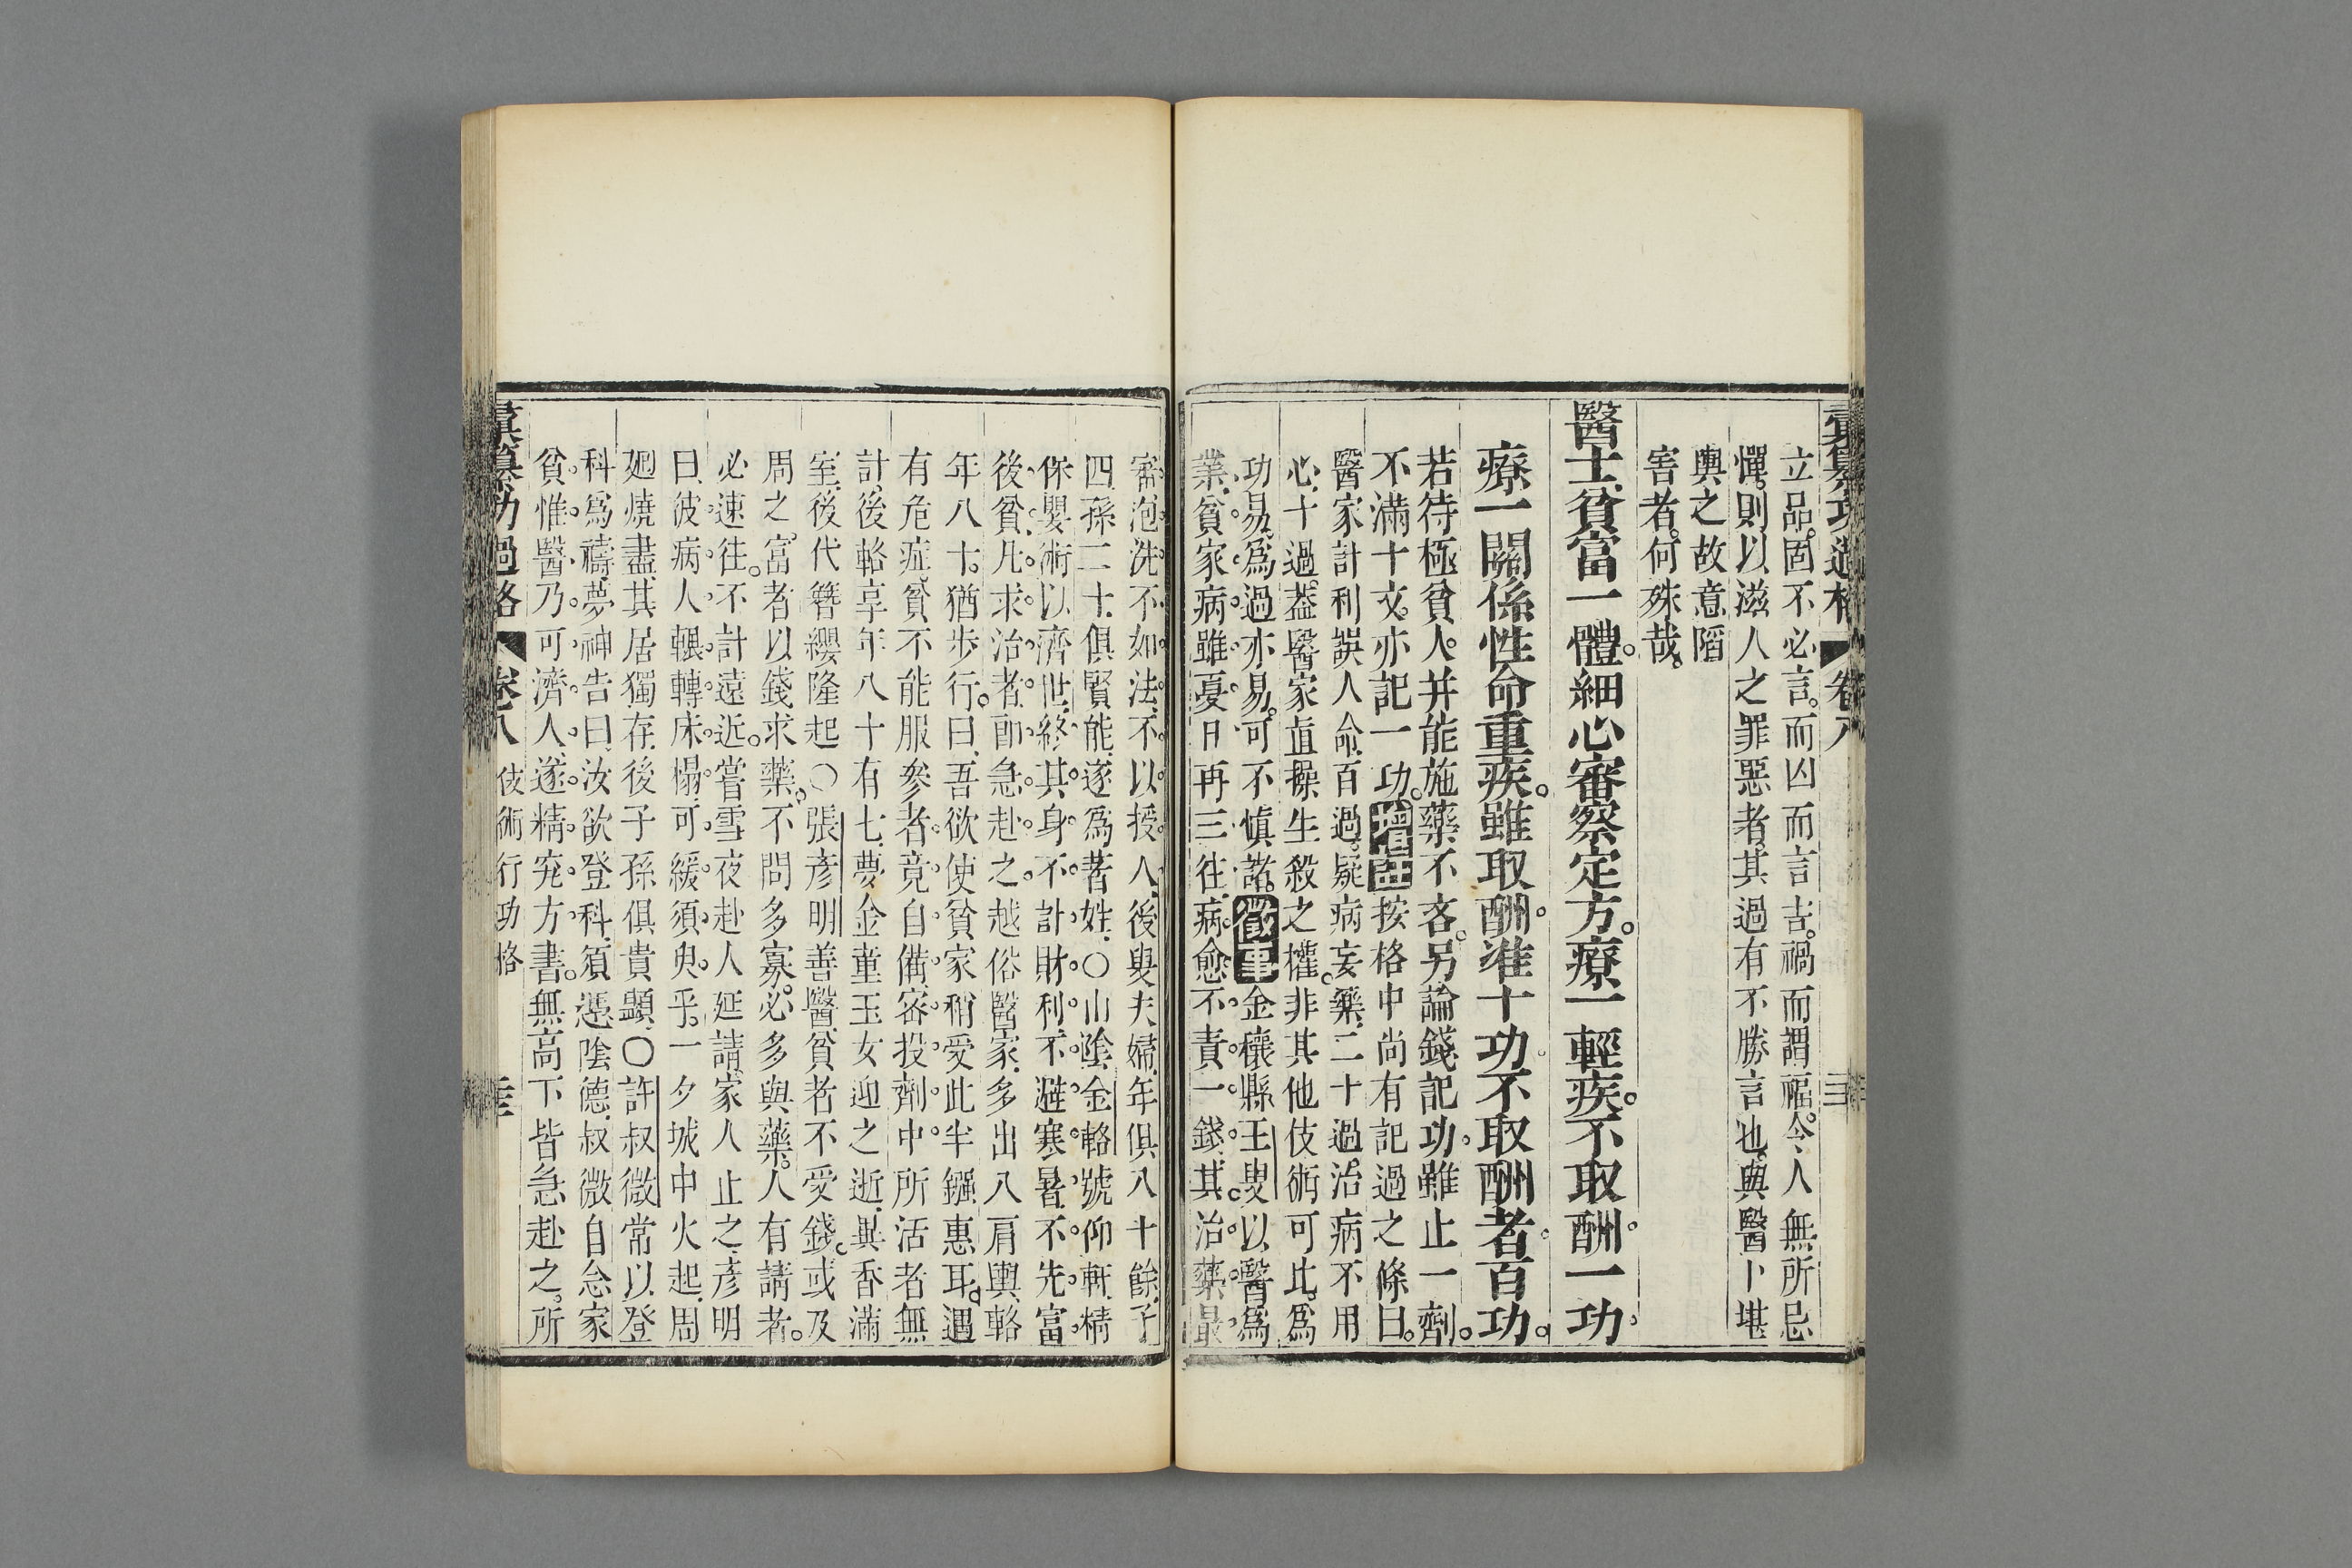 彙纂功過格 卷八
立品。固不必言。而凶而言吉。禍而謂福。今人無所忌
憚。則以滋人之罪惡者。其過有不勝言也。與醫卜堪
輿之故意陷
害者。何殊哉。
醫士貧富一體。細心審察定方。療一輕疾。不取酬。一功。
療一關係性命重疾。雖取酬。准十功。不取酬者。百功。
若待極貧人。并能施藥不吝。另論錢記功。雖止一劑。
不滿十文。亦記一功。增註按格中尚有記過之條曰。
醫家計利誤人命。百過。疑病妄藥。二十過。治病不用
心。十過。葢醫家直操生殺之權。非其他伎術可比。為
功易。為過亦易。可不慎諸。徵事金穰縣王叟。以醫為
業。貧家病。雖憂日再三往。病愈。不責一錢。其治藥最
審。泡洗不如法。不以授人。後叟夫婦。年俱八十餘。子
四。孫二十。俱賢能。遂為著姓。○山陰金輅號仰軒。精
保嬰術以濟世。終其身。不計財利。不避寒暑。不先富
後貧。凡求治者。卽急赴之。越俗醫家。多出八肩輿。輅
年八十。猶步行。曰。吾欲使貧家稍受此半鏹惠耳。遇
有危症。貧不能服參者。竟自備。密投劑中。所活者無
計。後輅享年八十有七。夢金童玉女迎之逝。異香滿
室。後代簪纓隆起。○張彥明善醫。貧者不受錢。或反
周之。富者以錢求藥。不問多寡。必多與藥。人有請者。
必速往。不計遠近。嘗雪夜赴人延請。家人止之。彥明
曰。彼病人輾轉床榻。可緩須臾乎。一夕城中火起。周
廻燒盡。其居獨存。後子孫俱貴顯。○許叔微常以登
科為禱。夢神告曰。汝欲登科。須憑陰德。叔微自念家
貧。惟醫乃可濟人。遂精究方書。無高下皆急赴之。所
彙纂功過格 卷八 伎術行功格